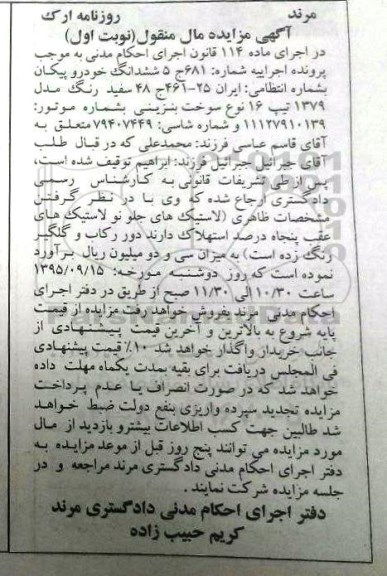 مرند روزنامه ارک
آگهی مزایده مال منقول(نوبت اول)
در اجرای ماده ۱۱۴ قانون اجرای احکام مدنی به موجب
پرونده اجراییه شماره: ۶۸۱ج ۵ ششدانگ خودرو پیکان
بشماره انتظامی: ایران ۲۵-۴۶۱ج ۴۸ سفید رنگ مدل
۱۳۷۹ تیپ ۱۶ نوع سوخت بنزینی بشماره موتور:
۱۱۱۲۷۹۱۰۱۳۹ و شماره شاسی: ۷۹۴۰۷۴۴۹متعلق به
آقای قاسم عباسی فرزند: محمدعلی که در قبال طلب
آقای جبرائیل جبرائیل فرزند: ابراهیم توقیف شده است،
پس از طی تشریفات قانونی به کارشناس رسمی
دادگستری ارجاع شده که وی با در نظر گرفتن
مشخصات ظاهری (لاستیک های جلو نو لاستیک های
عقب پنجاه درصد استهلاک دارند دور رکاب و گلگیر
رنگ زده است) به میزان سی و دو میلیون ریال برآورد
نموده است که روز دوشنبه مورخه: ۱۳۹۵/۰۹/۱۵
ساعت ۱۰/۳۰ الی ۱۱/۳۰ صبح از طریق در دفتر اجرای
احکام مدنی مرند بفروش خواهد رفت مزایده از قیمت
پایه شروع به بالاترین و آخرین قیمت پیشنهادی از
جانب خریدار واگذار خواهد شد ۱۰٪ قیمت پیشنهادی
فی المجلس دریافت برای بقیه بمدت یکماه مهلت داده
خواهد شد که در صورت انصراف یا عدم پرداخت
مزایده تجدید سپرده واریزی بنفع دولت ضبط خواهد
شد طالبین جهت کسب اطلاعات بیشترو بازدید از مال
مورد مزایده می توانند پنج روز قبل از موعد مزایده به
دفتر اجرای احکام مدنی دادگستری مرند مراجعه و در
جلسه مزایده شرکت نمایند .
دفتر اجرای احکام مدنی دادگستری مرند
کریم حبیب زاده